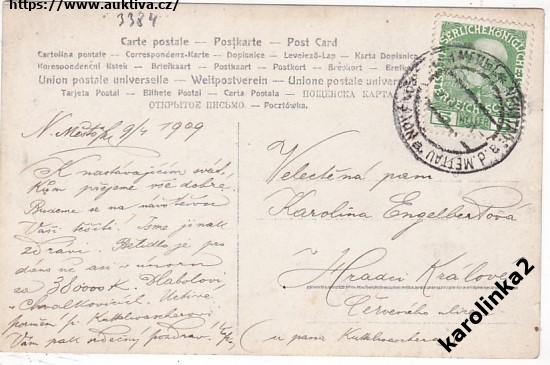 https://www.auktiva.cz/
3384
Carte postale — Postkarte — Post Card
Cartolina postale — Correspondenz-Karte — Dopisnice — Levelező-Lap — Karta Dopisnica
Korespondenční lístek — Briefkaart — Postkaart — Postkort — Brèvkort —
Union postale universelle — Weltpostverein — Unione postale universale
Tarjeta Postal — Bilhete Postal — Carta Postala — ПОЩЕНСКА КАРТА
ОТКРЫТОЕ ПИСЬМО. — Pocztówka.
SERLICHE KÖNIGLICHE
HELLER
N. 9/4 1909
K nastávajícím svát.
Vám přejeme vše dobré.
Budeme se na návštěvu
Vaši těšiti! Jsme jinak
zdrávi. Bělidlo je pro
dáno as
za 380000 K. Habalovi
v Uctivé
p.
Vám pak srdečný pozdrav
Velectěná paní
Karolina Engelbertová
Hradci Králové
Červeného
u pana
karolinka2